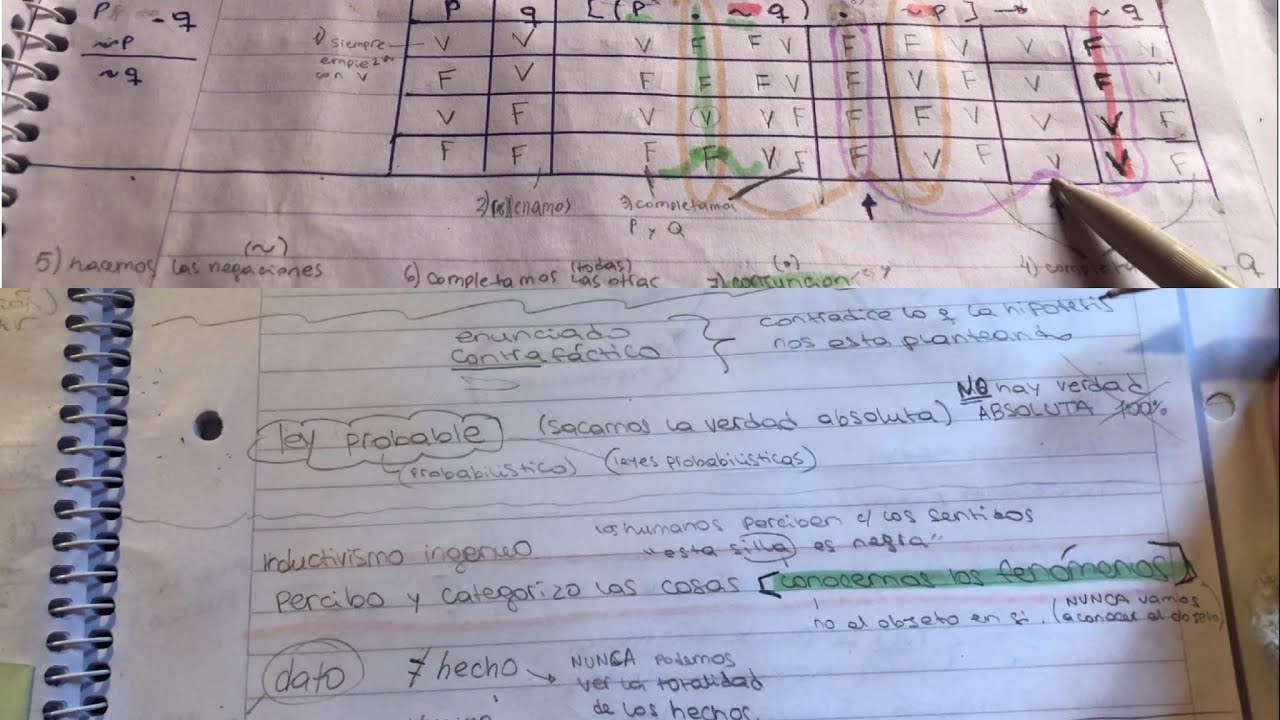 P - q
~P
~q
P q [(P . ~q) . ~P] → ~q
1) siempre V V V F F V F F V V F V
empieza
con V F V F F F V F V F V F V
V F V V V F F F V V V F
F F F F V F F V F V V F
2) rellenamos 3) completamos
P y Q
(~) (todas) (•)
5) hacemos las negaciones 6) completamos las otras 7) conjunción "•" 4) Q
enunciado
contrafáctico
contradice lo q la hipótesis
nos esta planteando
ley probable (sacamos la verdad absoluta) NO hay verdad
ABSOLUTA 100%
(probabilístico) (leyes probabilísticas)
los humanos perciben c/ los sentidos
inductivismo ingenuo "esta silla es negra"
Percibo y categorizo las cosas [conocemos los fenómenos]
no al objeto en si. (NUNCA vamos
a conocer al objeto)
dato ≠ hecho → NUNCA podemos
ver la totalidad
de los hechos.